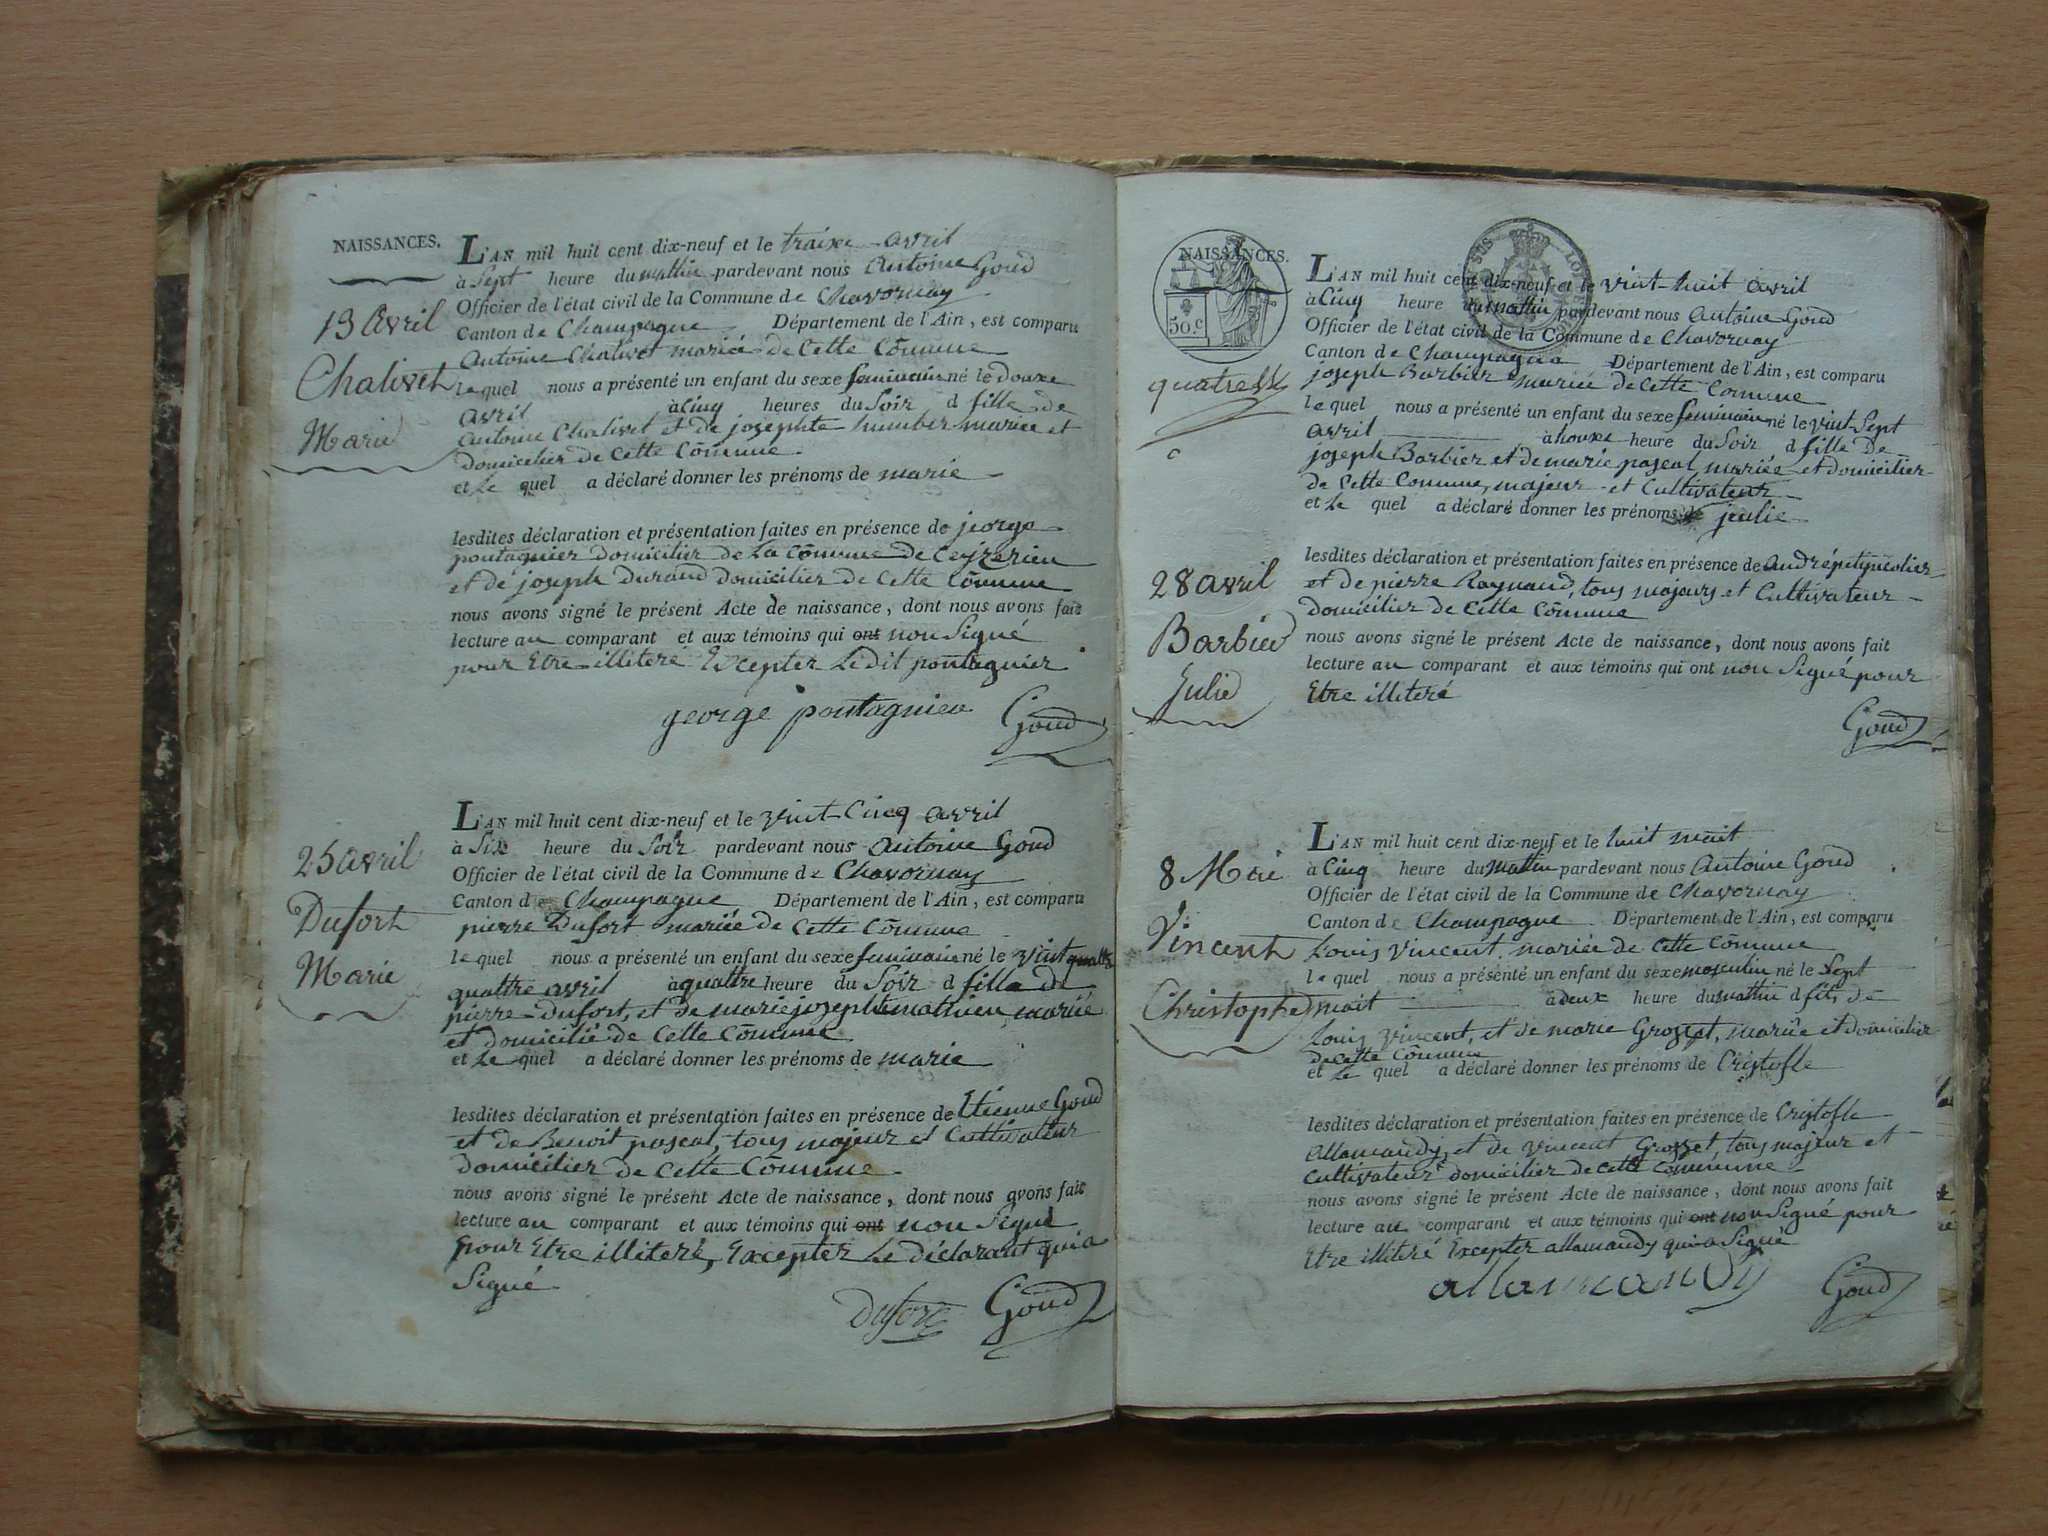 NAISSANCES.
L'AN mil huit cent dix-neuf et le traize avril
à Sept heure du mattin pardevant nous Antoine Goud
Officier de l'état civil de la Commune de Chavornay
Canton de Champagne Département de l'Ain, est comparu
Antoine Chalivet mariée de Cette Cōmune
le quel nous a présenté un enfant du sexe feminain né le douxe
avril à Cinq heures du Soir d fille de
antoine Chalivet et de josephte humber mariée et
domicilier de Cette Cōmune
et Le quel a déclaré donner les prénoms de marie
13 avril
Chalivet
Marie
lesdites déclaration et présentation faites en présence de jeorge
pontagnier domicilier de La Cōmune de Ceyzerieu
et de joseph durand domicilier de Cette Cōmune
nous avons signé le présent Acte de naissance, dont nous avons fait
lecture au comparant et aux témoins qui ont non Signé
pour Etre illiteré Excepter Le dit pontagnier
george pontagnier Goud
L'AN mil huit cent dix-neuf et le vint-Cinq avril
à Six heure du Soir pardevant nous antoine Goud
Officier de l'état civil de la Commune de Chavornay
Canton de Champagne Département de l'Ain, est comparu
pierre Dufort mariée de Cette Cōmune
le quel nous a présenté un enfant du sexe feminain né le vint quattre
quattre avril à quattre heure du Soir d fille de
pierre Dufort, et de marie josephte mathieu mariée
et domicilié de Cette Cōmune
et Le quel a déclaré donner les prénoms de marie
25 avril
Dufort
Marie
lesdites déclaration et présentation faites en présence de Etienne Goud
et de Benoit pascal, tous majeur et Cultivateur
domicilier de Cette Cōmune
nous avons signé le présent Acte de naissance, dont nous avons fait
lecture au comparant et aux témoins qui ont non Signé
pour Etre illiteré, Excepter Le déclarant qui a
Signé
Dufort Goud
NAISSANCES.
50.c
L'AN mil huit cent dix-neuf et le vint-huit avril
à Cinq heure du mattin pardevant nous Antoine Goud
Officier de l'état civil de la Commune de Chavornay
Canton de Champagne Département de l'Ain, est comparu
joseph Barbier mariée de Cette Commune
le quel nous a présenté un enfant du sexe feminain né le vint Sept
avril à houxe heure du Soir d fille de
joseph Barbier et de marie pascal mariée et domicilier
de Cette Commune, majeur et Cultivateur
et Le quel a déclaré donner les prénoms de julie
28 avril
Barbier
Julie
lesdites déclaration et présentation faites en présence de
et de pierre Raynaud, tous majeurs et Cultivateur
domicilier de Cette Cōmune
nous avons signé le présent Acte de naissance, dont nous avons fait
lecture au comparant et aux témoins qui ont non Signé pour
Etre illiteré
Goud
L'AN mil huit cent dix-neuf et le huit mait
à Cinq heure du mattin pardevant nous Antoine Goud
Officier de l'état civil de la Commune de Chavornay
Canton de Champagne Département de l'Ain, est comparu
Louis Vincent mariée de Cette Cōmune
le quel nous a présenté un enfant du sexe masculin né le Sept
mait à deux heure du mattin d fils de
Louis Vincent, et de marie Grosset, mariée et domicilier
de Cette Cōmune
et Le quel a déclaré donner les prénoms de Cristofle
8 Mai
Vincent
Christophe
lesdites déclaration et présentation faites en présence de Cristofle
Allamandy, et de vincent Grosset, tous majeur et
Cultivateur domicilier de Cette Commune
nous avons signé le présent Acte de naissance, dont nous avons fait
lecture au comparant et aux témoins qui ont non Signé pour
Etre illiteré Excepter allamandy qui a Signé
allamandy Goud